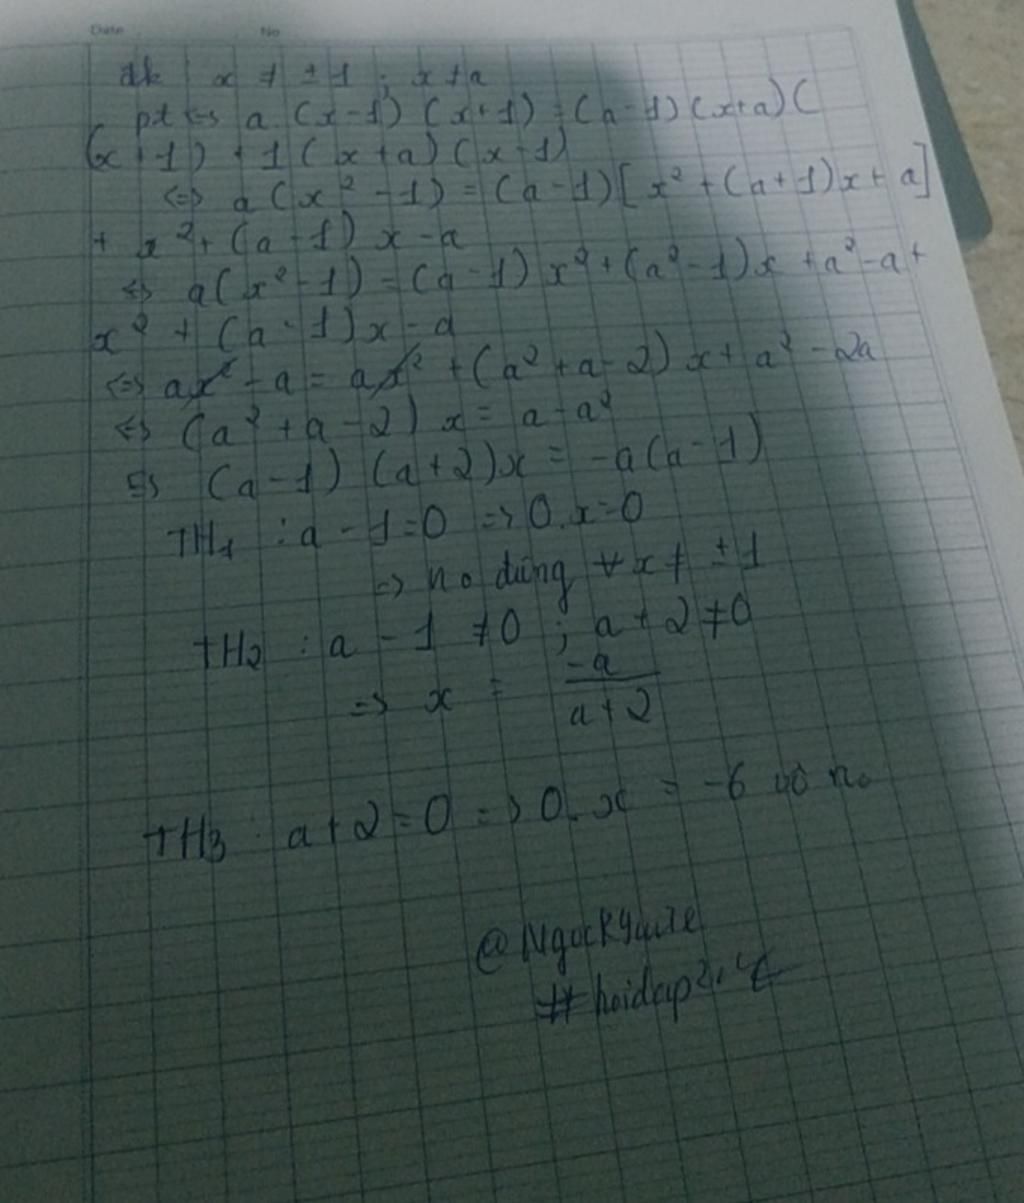 Date No
đk x ≠ ±1 ; x ≠ a
pt <=> a (x-1) (x+1) = (a-1) (x+a) (
(x+1) + 1 (x+a) (x-1)
<=> a (x² - 1) = (a-1) [x² + (a+1)x + a]
+ x² + (a-1) x - a
<=> a(x² - 1) = (a-1) x² + (a²-1)x + a² - a +
x² + (a-1)x - a
<=> ax² - a = ax² + (a² + a - 2) x + a² - 2a
<=> (a² + a - 2) x = a - a²
<=> (a-1) (a+2)x = -a(a-1)
TH1 : a - 1 = 0 => 0.x = 0
=> no đúng ∀x ≠ ±1
TH2 : a - 1 ≠ 0 ; a + 2 ≠ 0
=> x = -a/(a+2)
TH3 : a + 2 = 0 => 0.x = -6 vô no